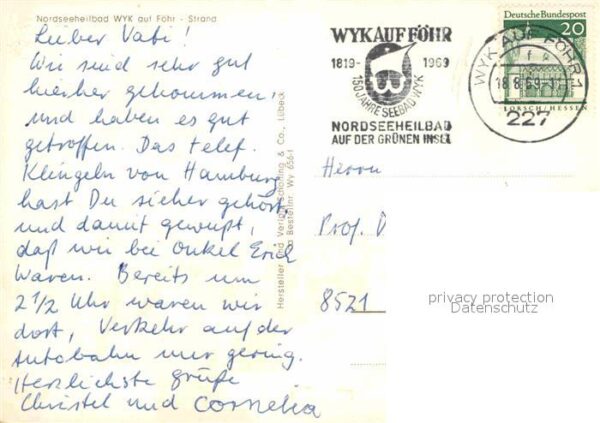 Nordseeheilbad WYK auf Föhr - Strand
Lieber Vati!
Wir sind sehr gut
hierher gekommen
und haben es gut
getroffen. Das telef.
Klingeln von Hamburg
hast Du sicher gehört
und damit gewußt,
daß wir bei Onkel Erich
waren. Bereits um
2 1/2 Uhr waren wir
dort, Verkehr auf der
Autobahn nur gering.
Herzlichste Grüße
Christel und Cornelia
Hersteller und Verlag Schöning & Co., Lübeck
Bestellnr Wy 656
WYK AUF FÖHR
1819- 1969
150 JAHRE SEEBAD WYK
NORDSEEHEILBAD
AUF DER GRÜNEN INSEL
Deutsche Bundespost
20
LORSCH/HESSEN
WYK AUF FÖHR 1
18.8.69-17
227
Herrn
Prof.
8521
privacy protection
Datenschutz